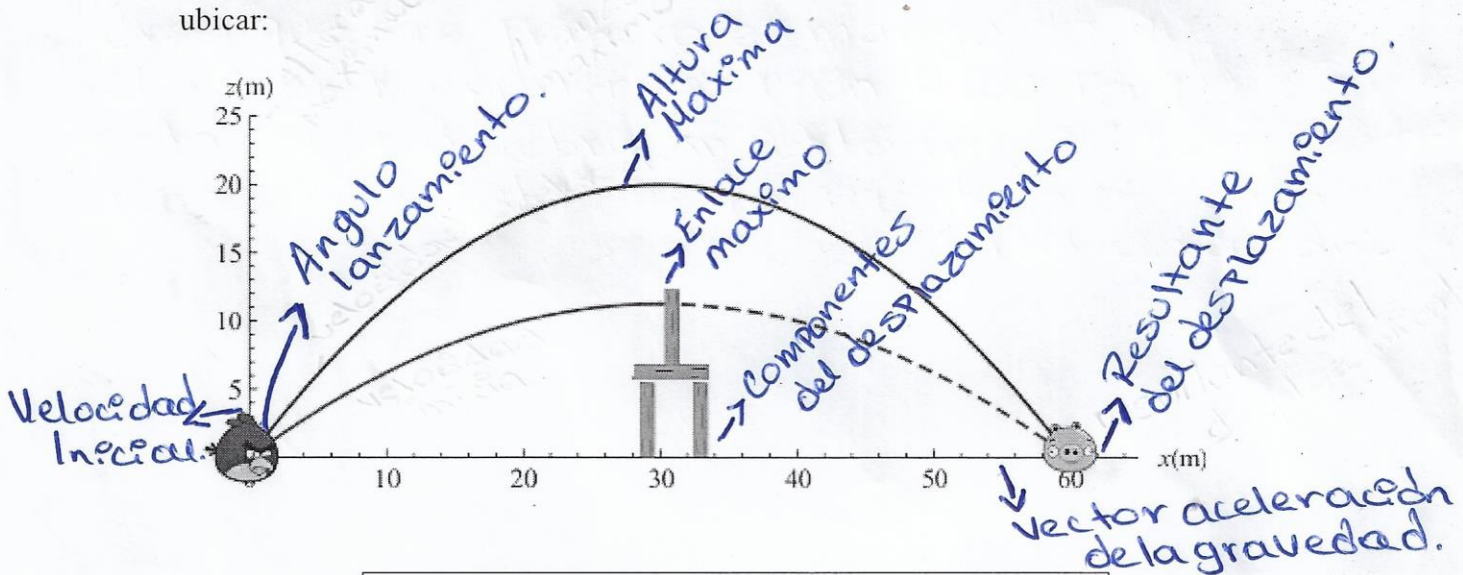 ubicar:
z(m)
25
20
15
10
5
10
20
30
40
50
60
x(m)
Velocidad
Inicial.
Angulo
lanzamiento.
Altura
Maxima
Enlace
maximo
Componentes
del desplazamiento
Resultante
del desplazamiento.
Vector aceleración
dela gravedad.